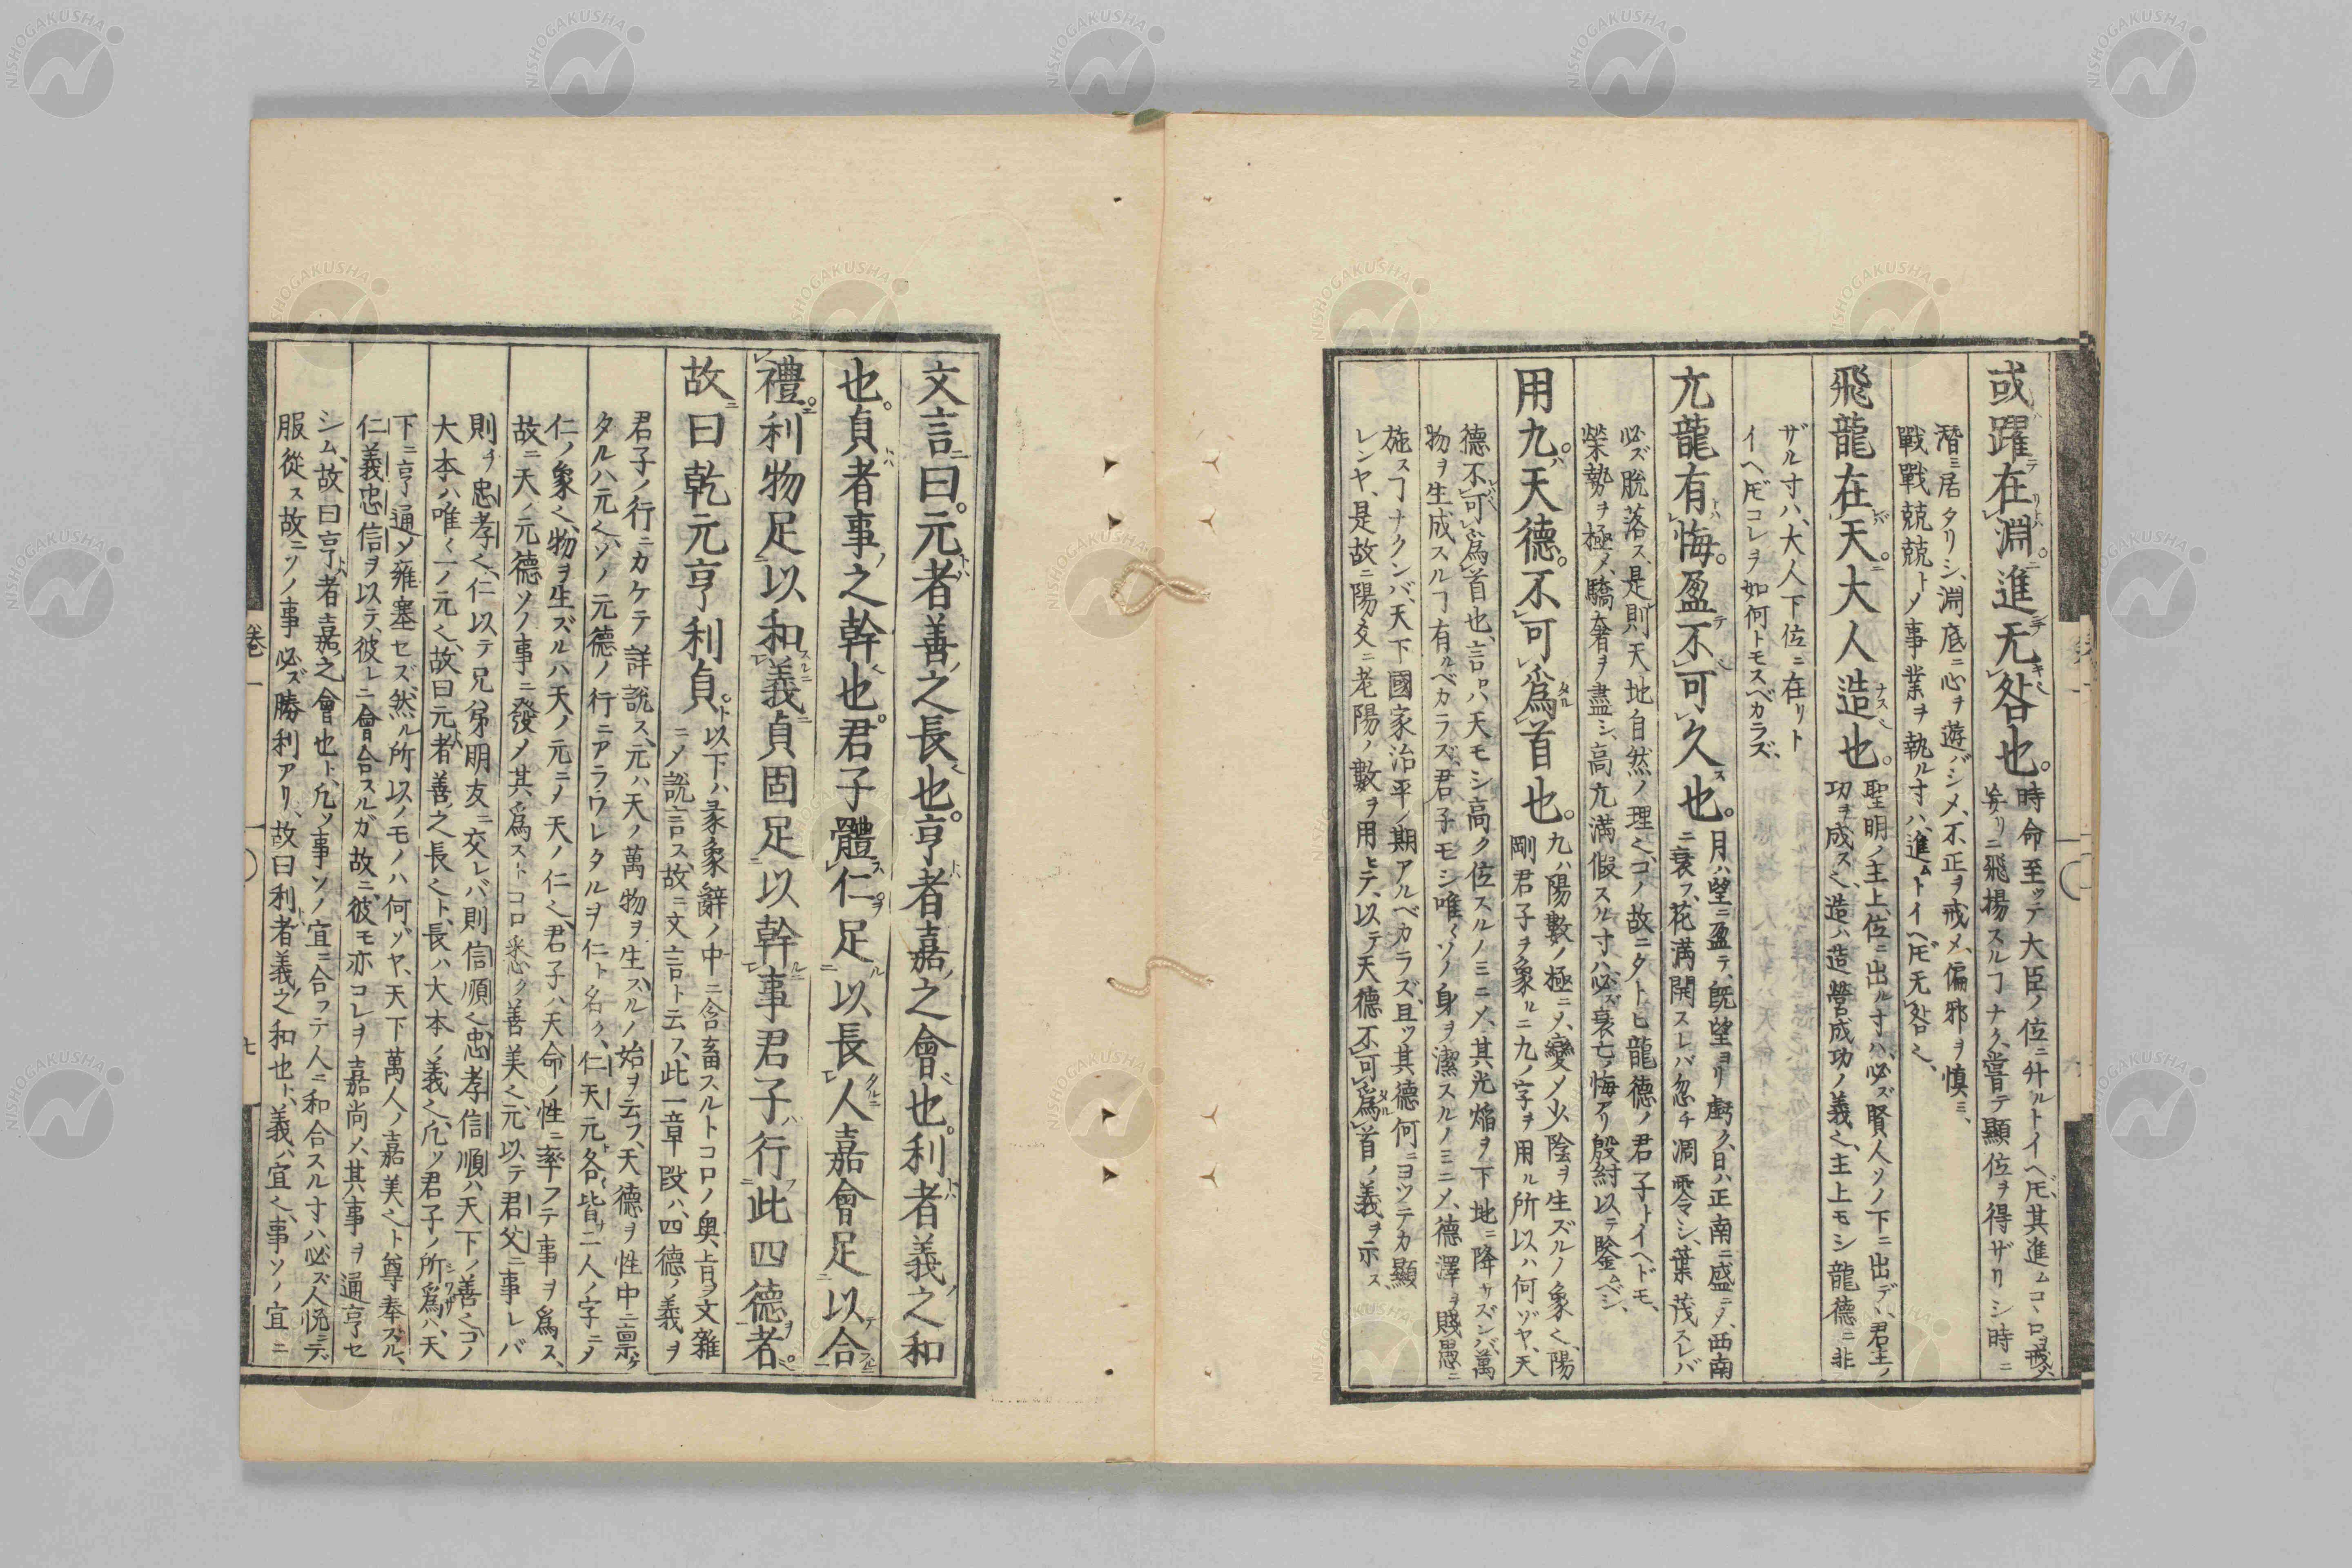 或躍在淵。進无咎也。
時命至ッテ大臣ノ位ニ升ルトイヘ𪜈、其進ムコヽロヲ戒ハ
ニ飛揚スルヿナク、嘗テ顯位ヲ得ザリシ時ニ
潛ミ居タリシ、淵底ニ心ヲ遊バシメ、不正ヲ戒メ、偏邪ヲ慎ミ、
戰戰兢兢トノ事業ヲ執ル寸ハ、進ムトイヘ𪜈无咎也、
飛龍在天。大人造也。
聖明ノ主上、位ニ出ル寸ハ、必ズ賢人ソノ下ニ出デ、君主ノ
功ヲ成ス也、造ハ造營成功ノ義也、主上モシ龍德ニ非
ザル寸ハ、大人下位ニ在リト
イヘ𪜈コレヲ如何トモスベカラズ、
亢龍有悔。盈不可久也。
月ハ望ニ盈テ、既望ヨリ虧ク、日ハ正南ニ盛ニノ、西南
ニ衰フ、花満開スレバ忽チ凋零シ、葉茂スレバ
必ズ脫落ス、是則天地自然ノ理也、コノ故ニタトヒ龍德ノ君子トイヘドモ、
榮勢ヲ極メ、驕奢ヲ盡シ、高亢満假スル寸ハ必ズ衰亡ノ悔アリ殷紂以テ鑒ムベシ、
用九。天德。不可為首也。
九ハ陽數ノ極ニノ、變ノ少陰ヲ生ズルノ象也、陽
剛君子ヲ象ルニ九ノ字ヲ用ル所以ハ何ゾヤ、天
德不可為首也、言ロハ天モシ高ク位スルノミニノ、其光焔ヲ下地ニ降サズンバ、萬
物ヲ生成スルヿ有ルベカラズ、君子モシ唯ゝソノ身ヲ潔スルノミニノ、德澤ヲ賤愚ニ
施スヿナクンバ、天下國家治平ノ期アルベカラズ、且ツ其德何ニヨツテカ顯
レンヤ、是故ニ陽爻ニ老陽ノ數ヲ用ヒテ、以テ天德不可為首ノ義ヲ示ス
文言曰。元者善之長也。亨者嘉之會也。利者義之和
也。貞者事之幹也。君子體仁足以長人嘉會足以合
禮。利物足以和義貞固足以幹事君子行此四德者
故曰乾元亨利貞。
以下ハ彖象辭ノ中ニ含畜スルトコロノ奥旨ヲ文雜
ニノ說言ス、故ニ文言ト云フ、此一章段ハ、四德ノ義ヲ
君子ノ行ニカケテ詳說ス、元ハ天ノ萬物ヲ生スルノ始ヲ云フ、天德ヲ性中ニ禀ケ
タルハ元也、ソノ元德ノ行ニアラワレタルヲ仁ト名ク、仁天元各皆二人ノ字ニノ
仁ノ象也、物ヲ生ズルハ天ノ元ニノ天ノ仁也、君子ハ天命ノ性ニ率フテ事ヲ為ス、
故ニ天ノ元德ソノ事ニ發ノ其為ストコロ悉ク善美也、元以テ君父ニ事レバ
則チ忠孝也、仁以テ兄弟朋友ニ交レバ則信順也、忠孝信順ハ天下ノ善也、コノ
大本ハ唯ゝ一ノ元也、故曰元者善之長也ト、長ハ大本ノ義也、凡ソ君子ノ所為ハ、天
下ニ亨通ノ雍塞セズ、然ル所以ノモノハ何ゾヤ、天下萬人ノ嘉美也ト尊奉ズル、
仁義忠信ヲ以テ、彼レニ會合スルガ故ニ、彼モ亦コレヲ嘉尚ノ、其事ヲ通亨セ
シム、故曰亨者嘉之會也ト、凡ソ事ソノ宜ニ合フテ人ニ和合スル寸ハ必ズ人悅ンデ
服從ス故ニソノ事必ズ勝利アリ、故曰利者義之和也ト、義ハ宜也、事ソノ宜ニ
卷一
七